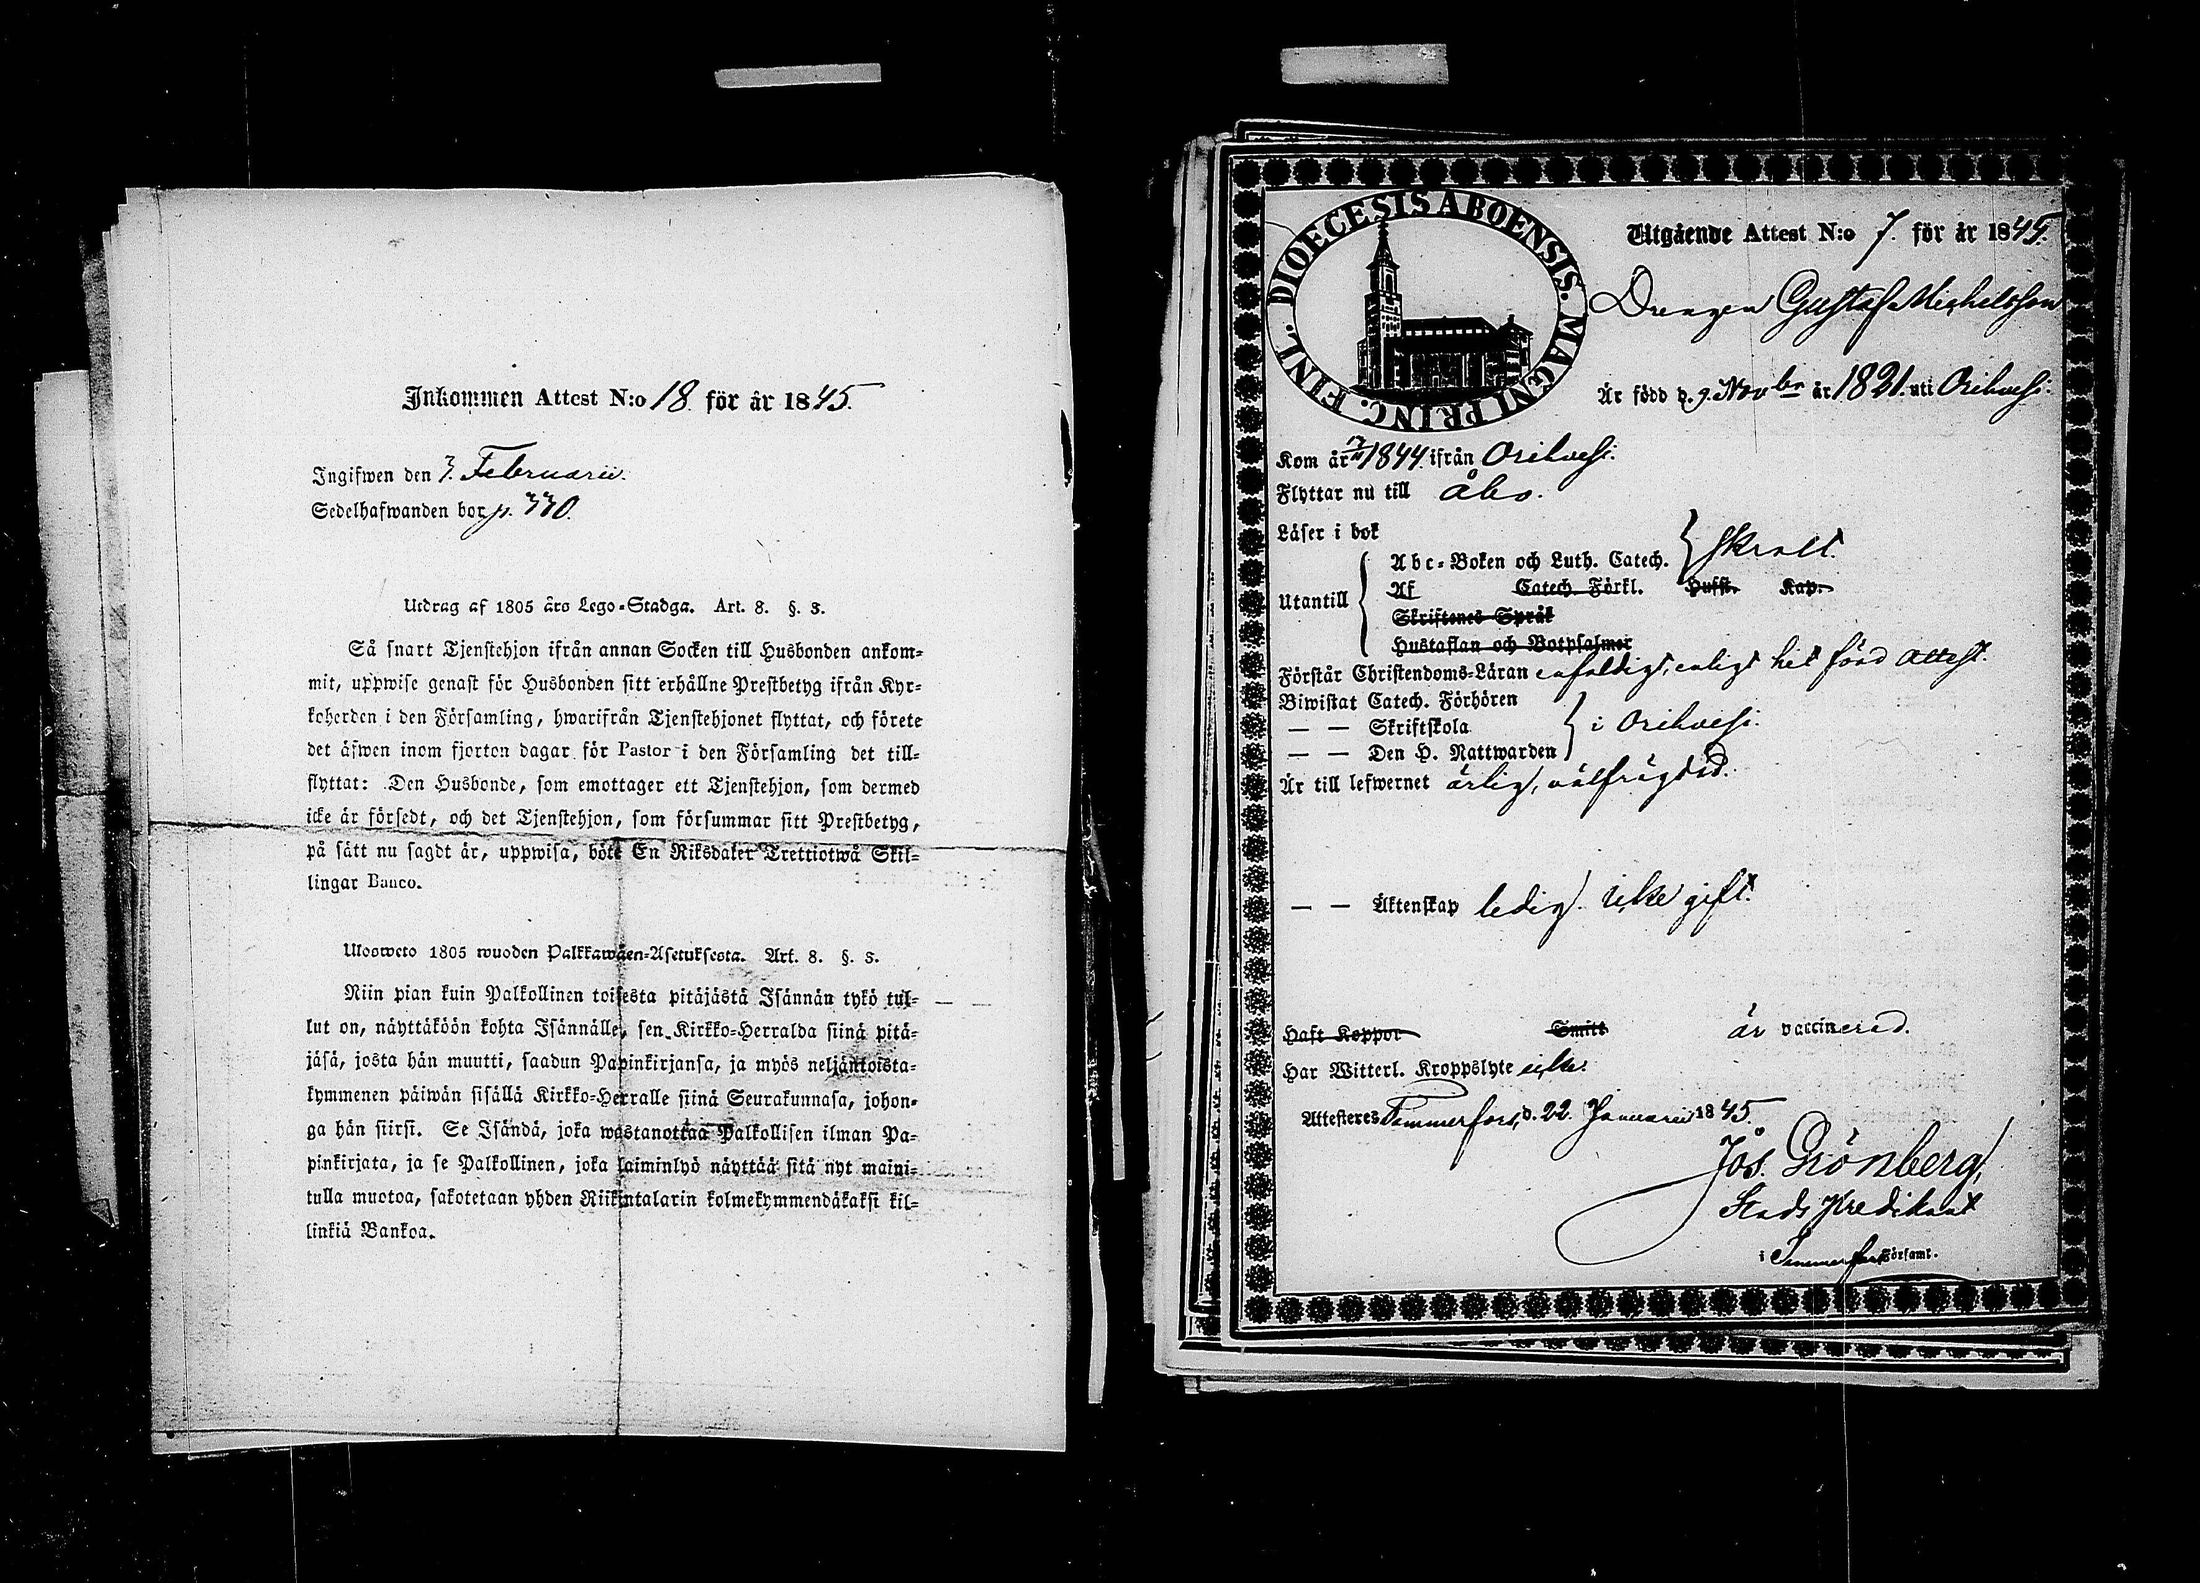 Inkommen Attest N:o 18. för år 1845.
Ingifwen den 3. Februarii.
Sedelhafwanden bor p. 330.
Utdrag af 1805 års Lego-Stadga. Art. 8. §. 3.
Så snart Tjenstehjon ifrån annan Socken till Husbonden ankom-
mit, uppwise genast för Husbonden sitt erhållne Prestbetyg ifrån Kyr-
koherden i den Församling, hwarifrån Tjenstehjonet flyttat, och förete
det äfwen inom fjorton dagar för Pastor i den Församling det till-
flyttat: Den Husbonde, som emottager ett Tjenstehjon, som dermed
icke är försedt, och det Tjenstehjon, som försummar sitt Prestbetyg,
på sätt nu sagdt är, uppwisa, böte En Riksdaler Trettiotwå Skil-
lingar Banco.
Ulosweto 1805 wuoden Palkkawäen-Asetuksesta. Art. 8. §. 3.
Niin pian kuin Palkollinen toisesta pitäjästä Isännän tykö tul-
lut on, näyttäköön kohta Isännälle, sen Kirkko-Herralda siinä pitä-
jäsä, josta hän muutti, saadun Papinkirjansa, ja myös neljäntoista-
kymmenen päiwän sisällä Kirkko-Herralle siinä Seurakunnasa, johon-
ga hän siirsi. Se Isändä, joka wastanottaa Palkollisen ilman Pa-
pinkirjata, ja se Palkollinen, joka laiminlyö näyttää sitä nyt maini-
tulla muotoa, sakotetaan yhden Riikintalarin kolmekymmendäkaksi kil-
linkiä Bankoa.
DIOECESIS ABOENSIS. MAGNI PRINC. FINL.
Utgående Attest N:o 7. för år 1845.
Drengen Gustaf Michelsson
Är född d. 9. Novbr år 1821. uti Orihvesi.
Kom år 1844. ifrån Orihvesi.
Flyttar nu till Åbo.
Läser i bok
Abc-Boken och Luth. Catech. } skralt.
Utantill
Af Catech. Förkl. Hufst. Kap.
Skriftenes Språk
Hustaflan och Botpsalmer
Förstår Christendoms-Läran enfaldigt, enligt hit förd Attest.
Biwistat Catech. Förhören
— — Skriftskola } i Orihvesi.
— — Den H. Nattwarden
Är till lefwernet ärlig, välfrägdad.
— — Äktenskap ledig. icke gift.
Haft Koppor Smitt är vaccinerad.
Har Witterl. Kroppslyte icke.
Attesteres Tammerfors, d. 22. Januarii 1845.
Jos. Grönberg,
Stads Predikant
i Tammerfors Församl.